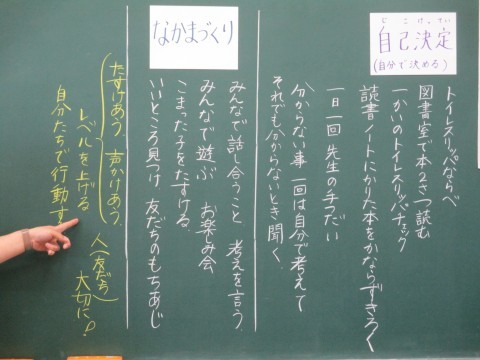 じこけってい
自己決定
(自分で決める)
トイレスリッパならべ
図書室で本2さつ読む
一かいのトイレスリッパチェック
読書ノートにかりた本をかならずきろく
一日一回 先生の手つだい
分からない事 一回は自分で考えて
それでも分からないとき聞く
なかまづくり
みんなで話し合うこと 考えを言う
みんなで遊ぶ お楽しみ会
こまった子をたすける
いいところ見つけ 友だちのもちあじ
たすけあう 声かけあう
レベルを上げる
人(友だち)
大切に!
自分たちで行動す